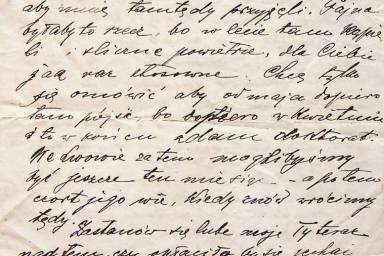 aby mnie tamtędy przyjęli. Fajna
byłaby to rzecz, bo w lecie tam kąpie
li i śliczne powietrze, dla Ciebie
jak raz stosowne. Chcę tylko
się omówić aby od maja dopiero
tam pójść, bo dopiero w kwietniu
i to w końcu zdam doktorat.
We Lwowie zatem moglibyśmy
być jeszcze ten miesiąc - a potem
czort jego wie, kiedy znów wrócimy
tędy. Zastanów się lube moje Ty teraz
nad tem, czy opłaciło by się jechać